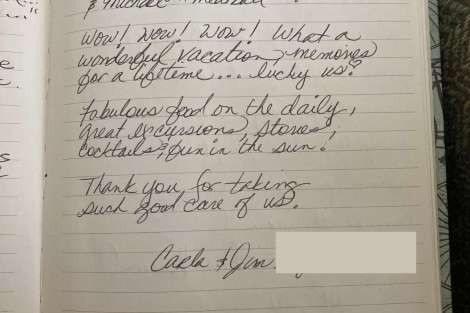 & Michael
Wow! Wow! Wow! What a
wonderful vacation, memories
for a lifetime... lucky us!
Fabulous food on the daily,
great excursions, stories,
cocktails, fun in the sun!
Thank you for taking
such good care of us.
Carla & Jim